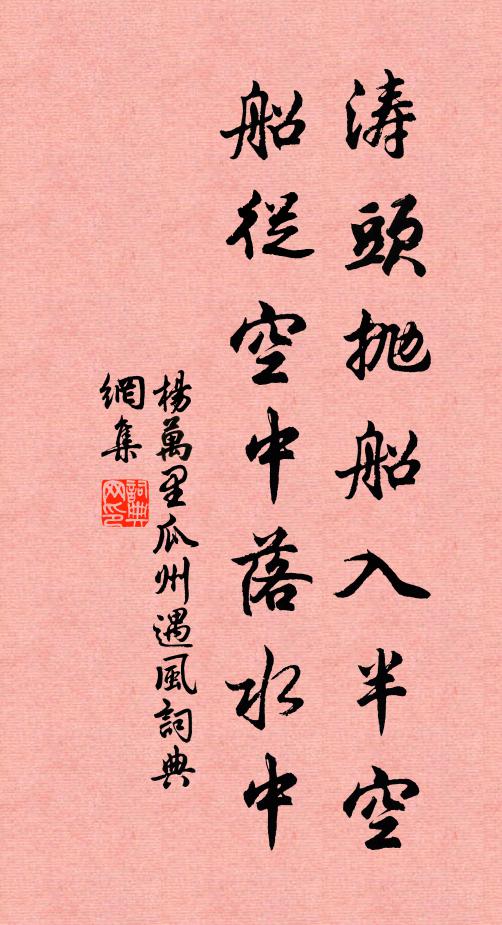 濤頭拋船入半空
船從空中落水中
楊萬里瓜州遇風詞典
網集
詞典網印